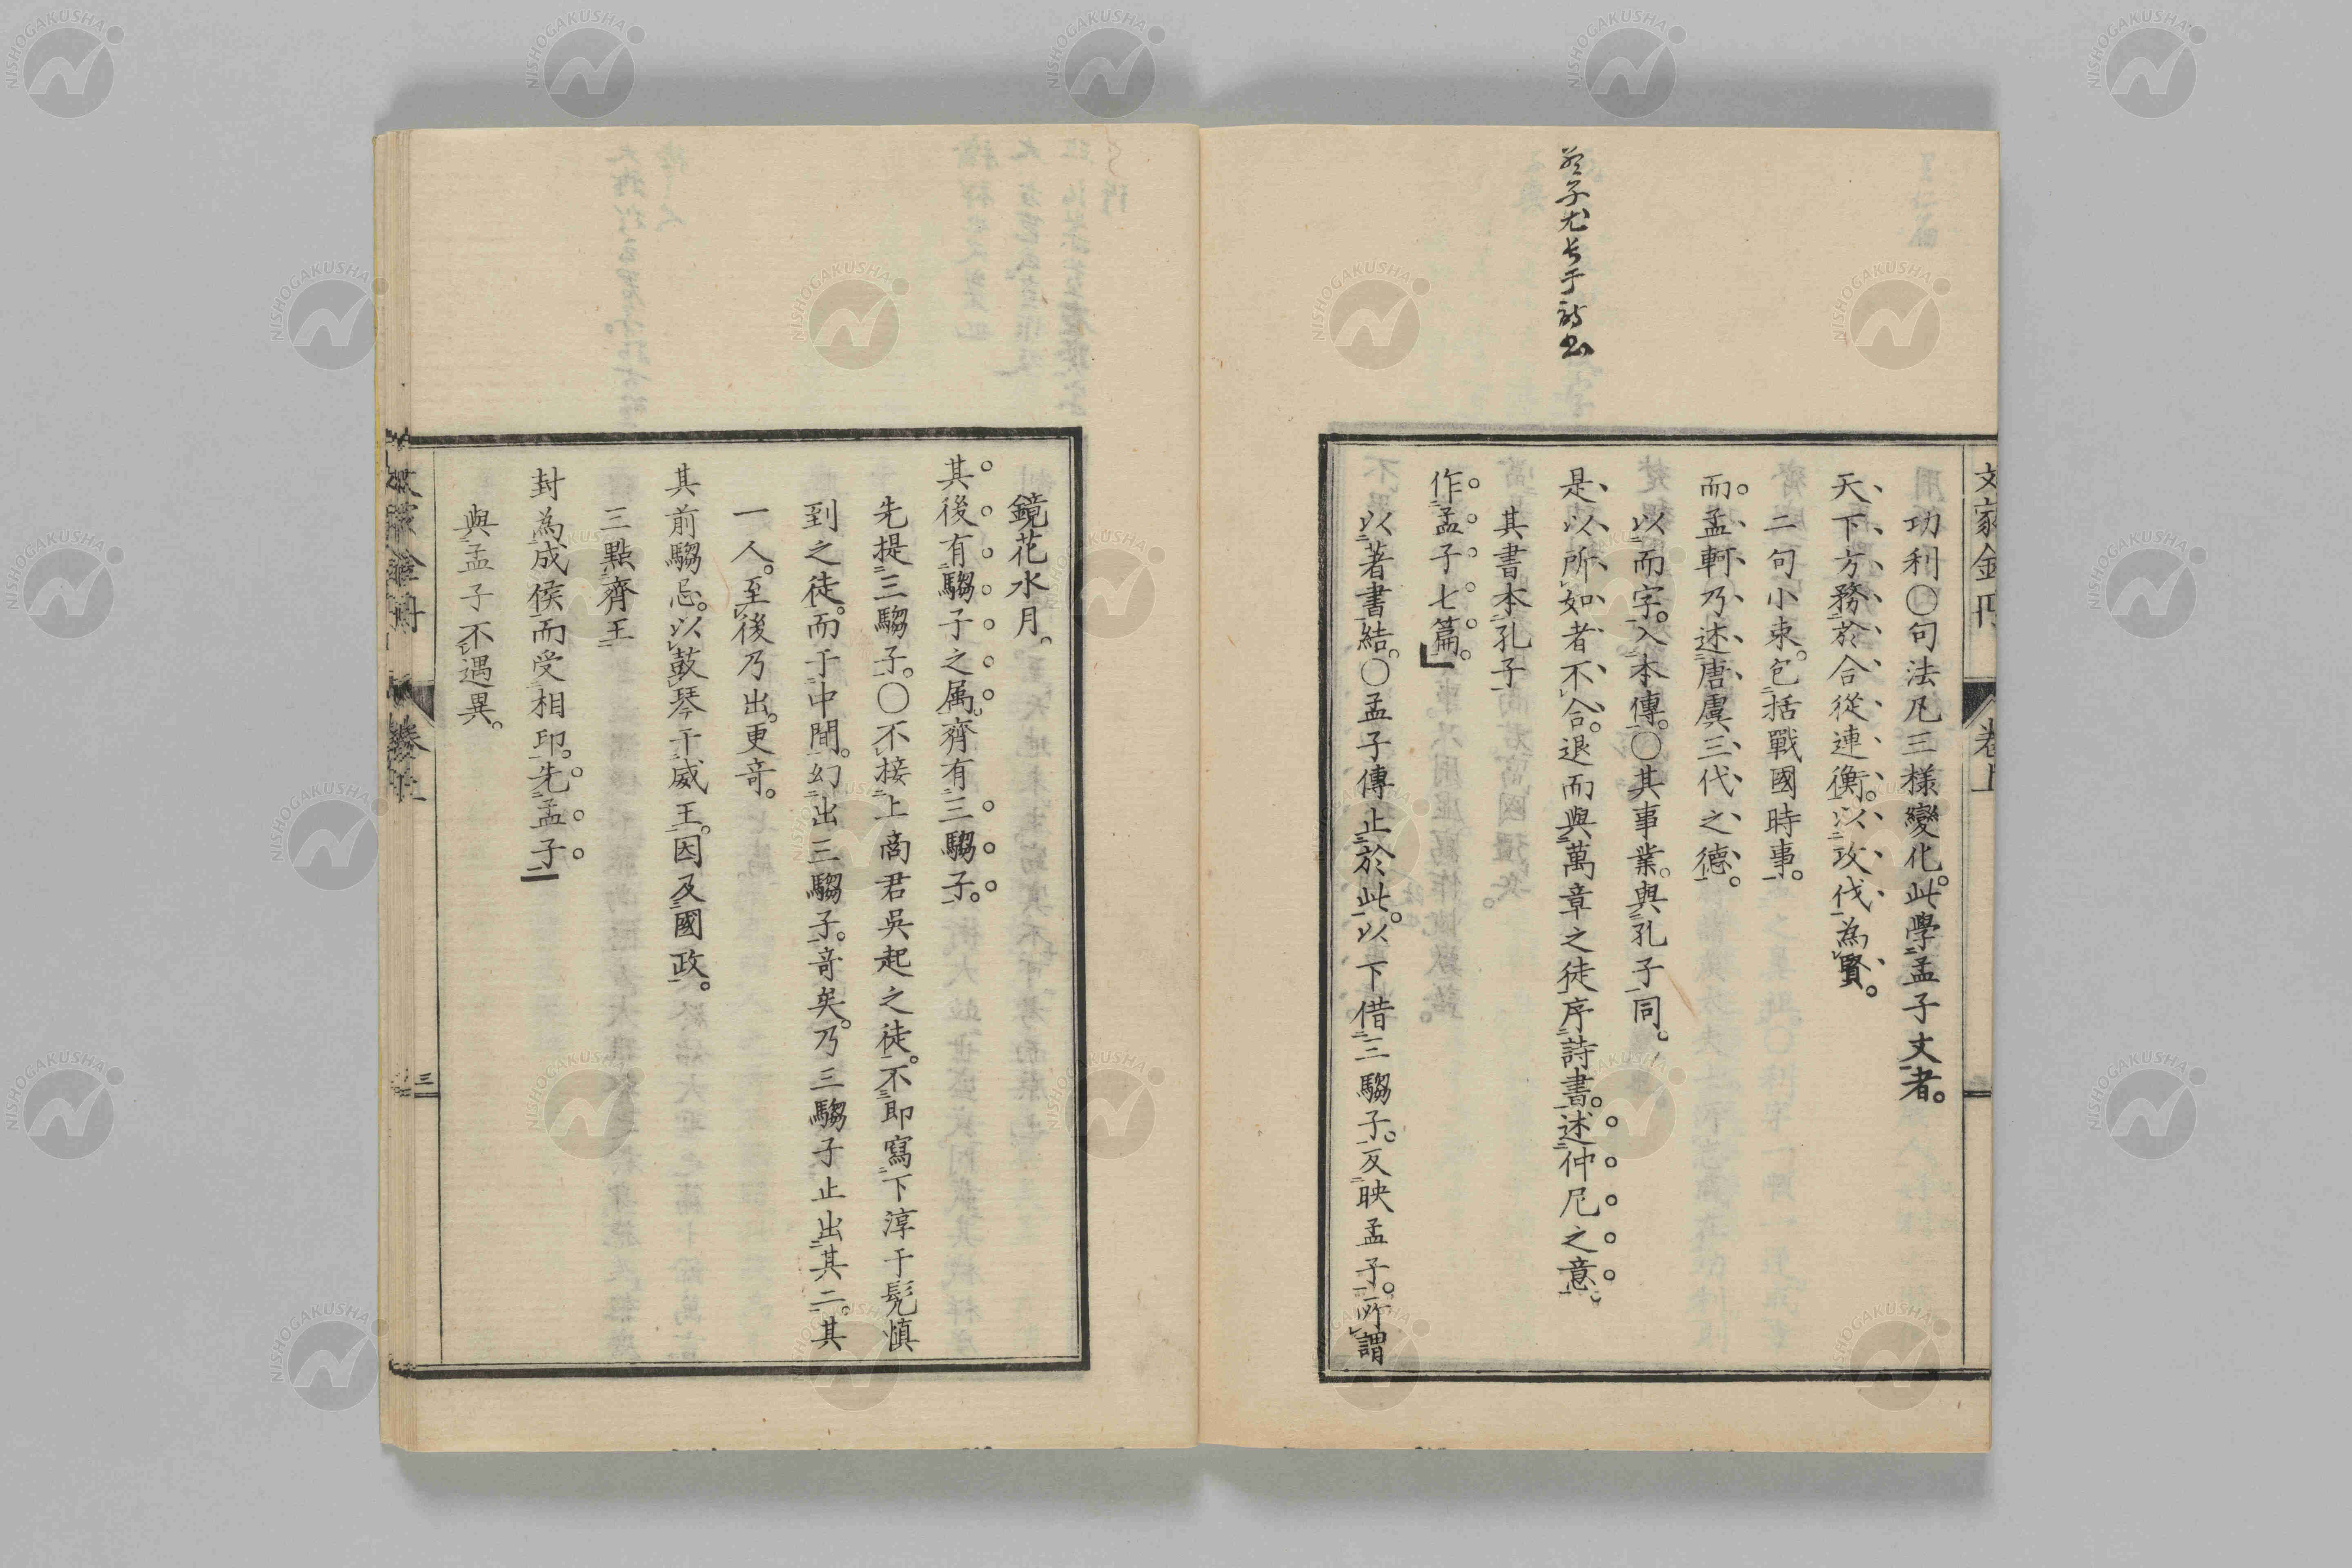 孟子尤長于詩書
文家金丹 卷上
功利〇句法凡三樣變化。此學孟子文者。
天下方務於合從連衡。以攻伐為賢。
二句小束。包括戰國時事。
而孟軻乃述唐虞三代之德。
以而字。入本傳。〇其事業。與孔子同。
是以所如者不合。退而與萬章之徒序詩書。述仲尼之意。
其書本孔子
作孟子七篇。」
以著書結。〇孟子傳止於此。以下借三騶子。反映孟子。所謂
鏡花水月。
其後有騶子之属。齊有三騶子。
先提三騶子。〇不接上商君吳起之徒。不即寫下淳于髡慎
到之徒。而于中間。幻出三騶子。竒矣。乃三騶子止出其二。其
一人。至後乃出。更竒。
其前騶忌。以鼓琴干威王。因及國政。
三點齊王
封為成侯而受相印。先孟子
與孟子不遇異。
三
NISHOGAKUSHA